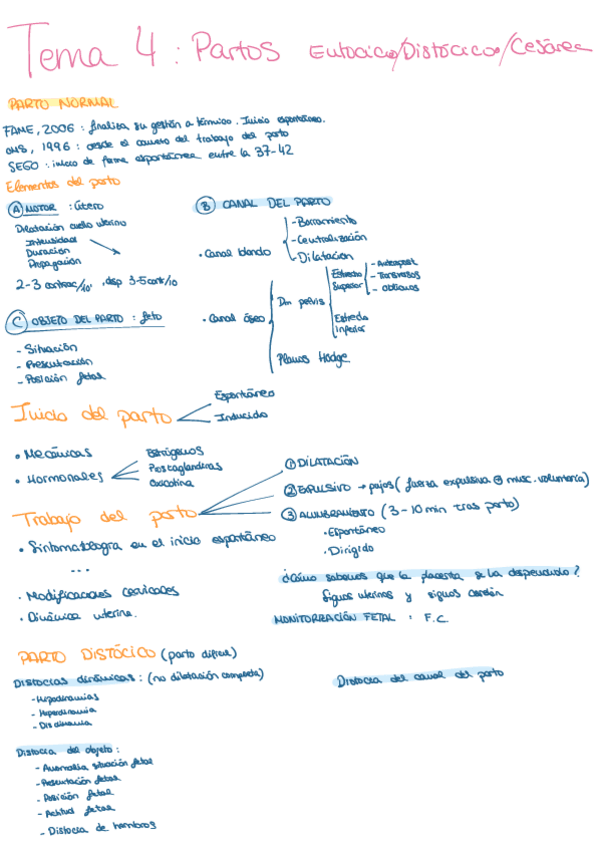 Tema 4 : Partos Eutocico/Distocico/Cesárea
PARTO NORMAL
FAME, 2006 : finaliza su gestión a término. Inicio espontáneo.
OMS, 1996 : desde el comienzo del trabajo del parto
SEGO : inicio de forma espontánea entre la 37-42
Elementos del parto
A MOTOR : útero
Dilatación cuello uterino
Intensidad
Duración
Propagación
2-3 contrac/10', dsp 3-5 cont/10
B CANAL DEL PARTO
• Canal blando
- Borramiento
- Centralización
- Dilatación
• Canal óseo
Dm pelvis
Estrecho Superior
- Anteropost
- Transversos
- Oblicuos
Estrecho Inferior
Planos Hodge
C OBJETO DEL PARTO : feto
- Situación
- Presentación
- Posición fetal
Inicio del parto
Espontáneo
Inducido
• Mecánicas
• Hormonales
Estrógenos
Prostaglandinas
Oxcitocina
Trabajo del parto
① DILATACIÓN
② EXPULSIVO → pujos ( fuerza expulsiva ⊕ musc. voluntaria)
③ ALUMBRAMIENTO (3-10 min tras parto)
• Espontáneo
• Dirigido
• Sintomatología en el inicio espontáneo
...
• Modificaciones cervicales
• Dinámica uterina.
¿Cómo sabemos que la placenta se ha desprendido?
Signos uterinos y signos cordón
MONITORIZACIÓN FETAL : F.C.
PARTO DISTÓCICO (parto difícil)
Distocias dinámicas : (no dilatación completa)
- Hipodinamias
- Hiperdinamia
- Disdinamia
Distocia del canal del parto
Distocia del objeto :
- Anomalía situación fetal
- Presentación fetal
- Posición fetal
- Actitud fetal
- Distocia de hombros